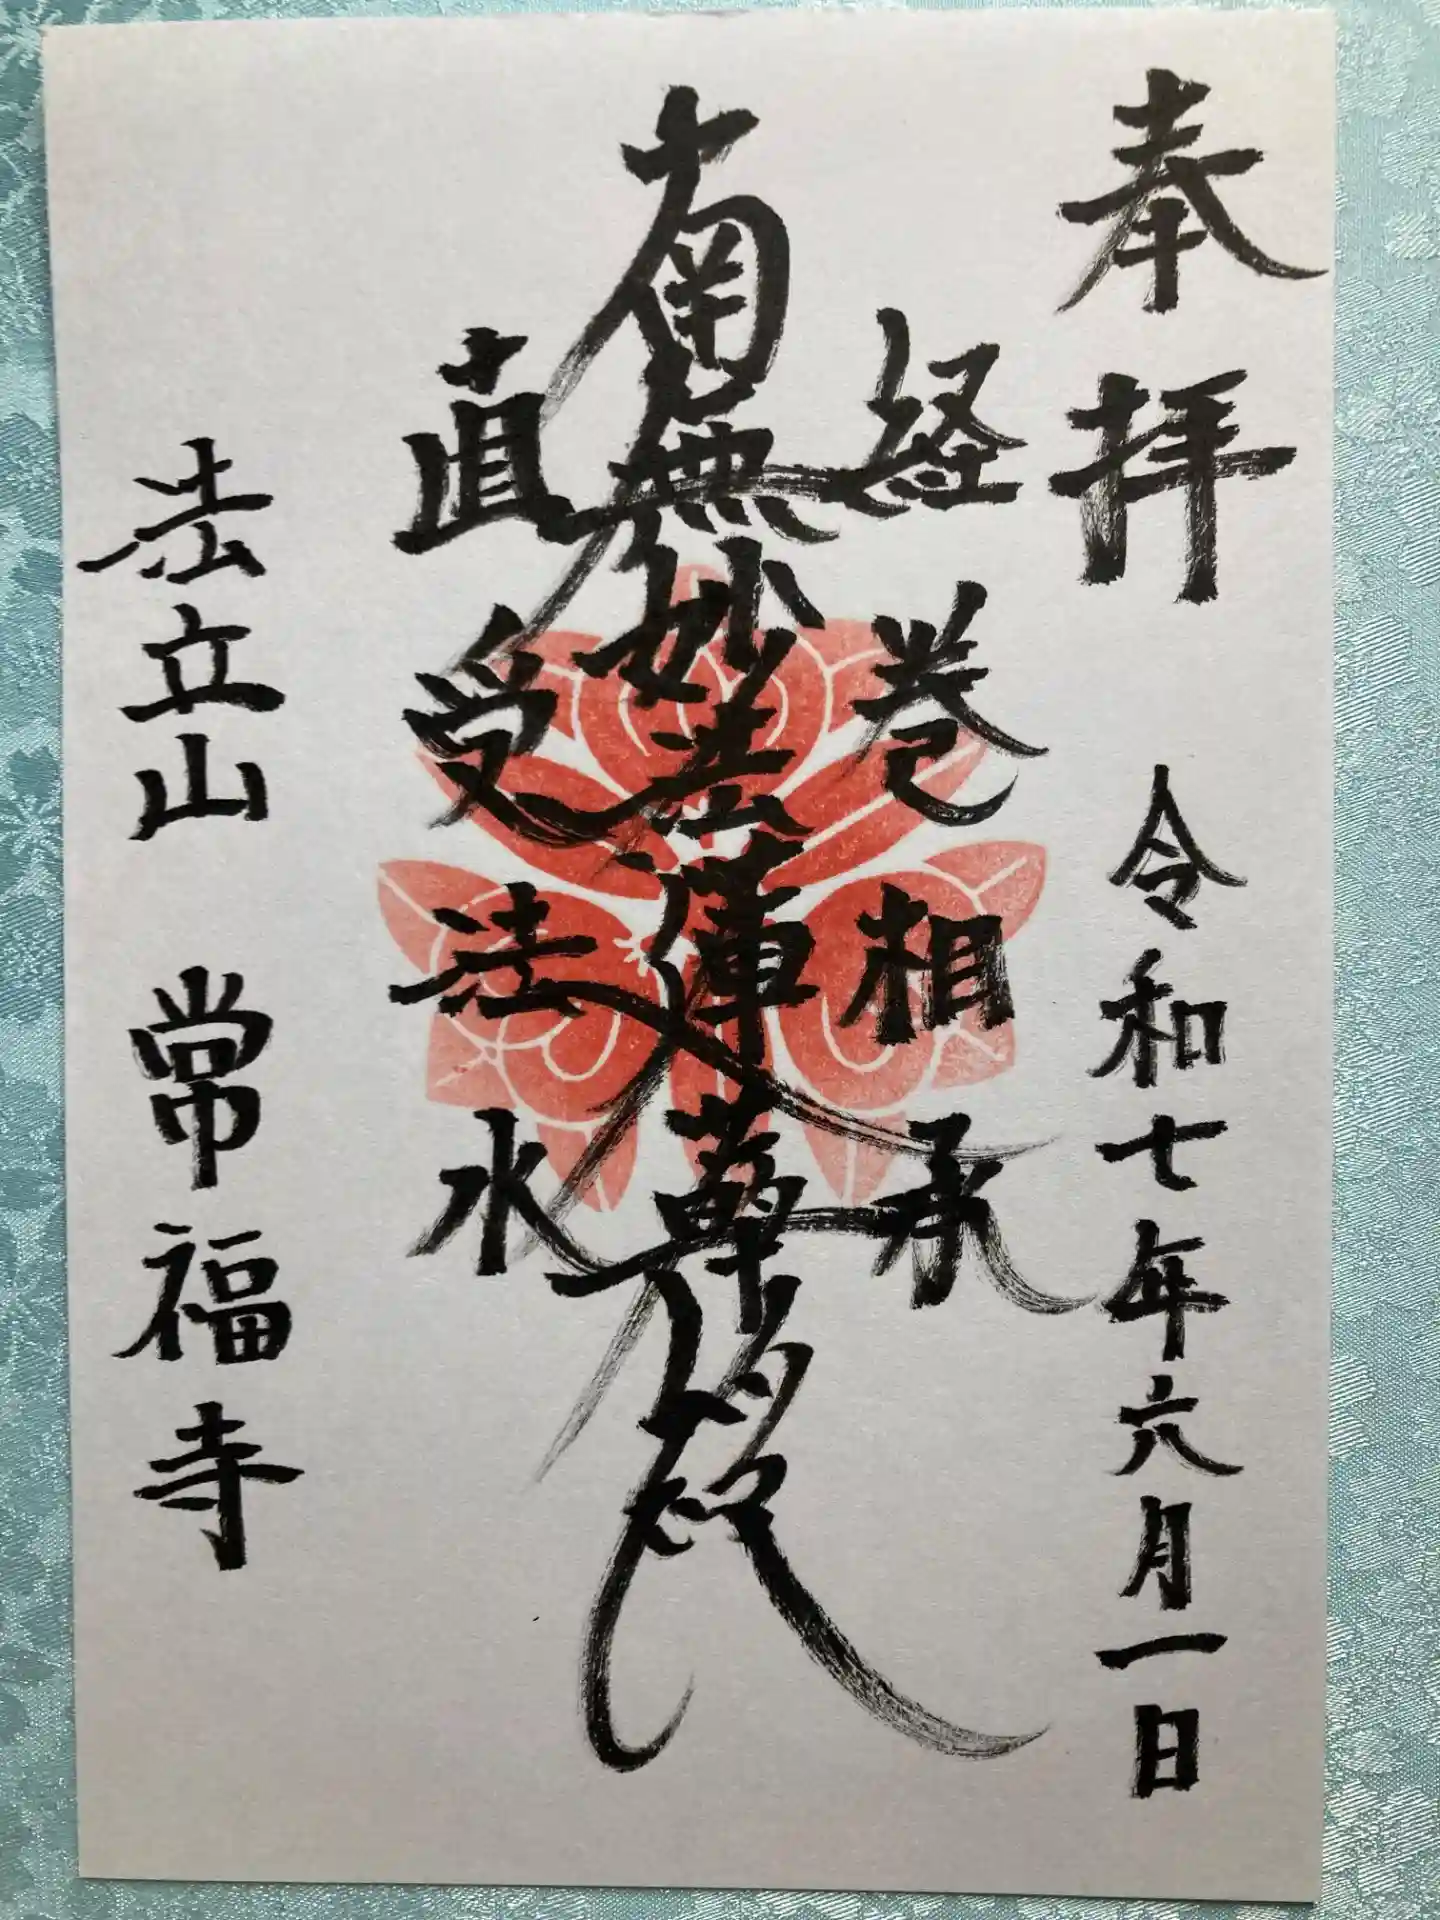 奉拝 令和七年六月一日
経巻相承
南無妙法蓮華経
直受法水
法立山 常福寺